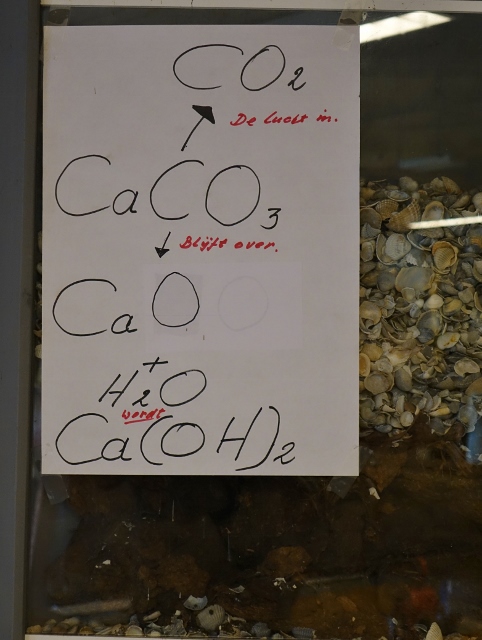 CO₂
De lucht in.
CaCO₃
Blijft over.
CaO
+
H₂O
wordt
Ca(OH)₂